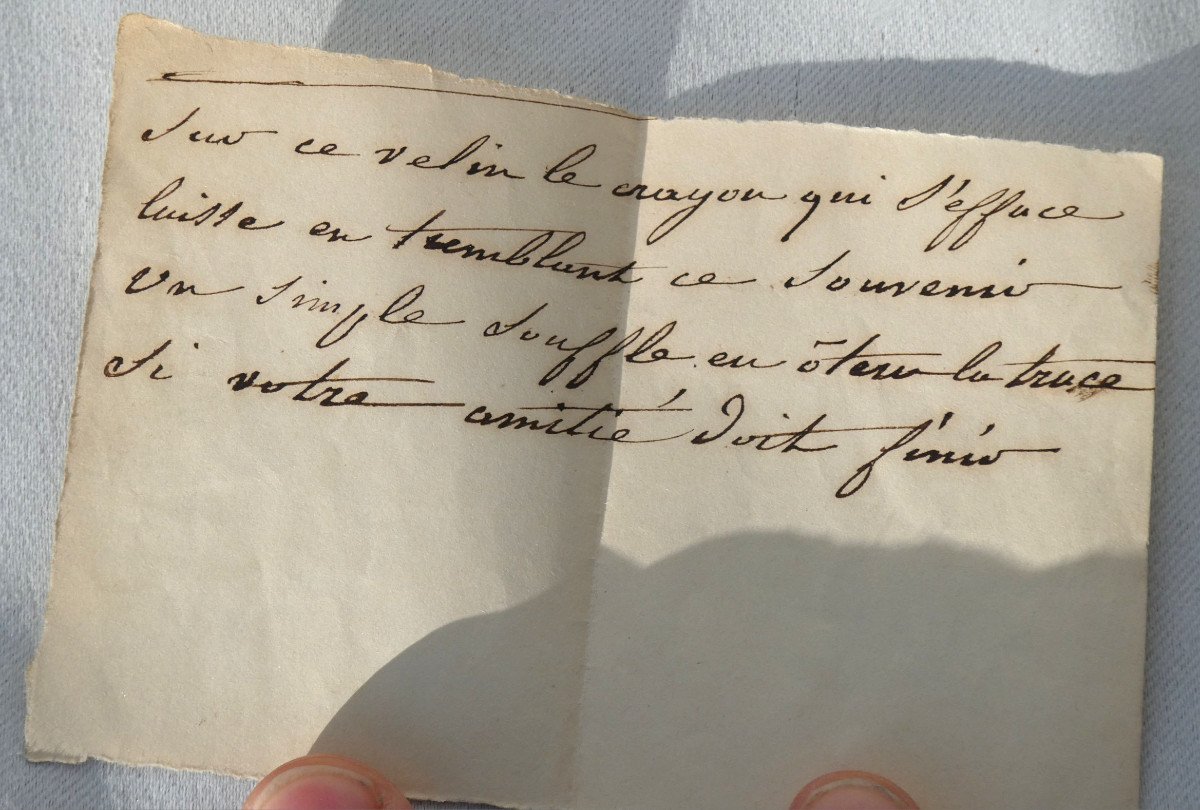 Sur ce velin le crayon qui s'efface
laisse en tremblant ce souvenir
un simple souffle en ôtera la trace
si votre amitié doit finir